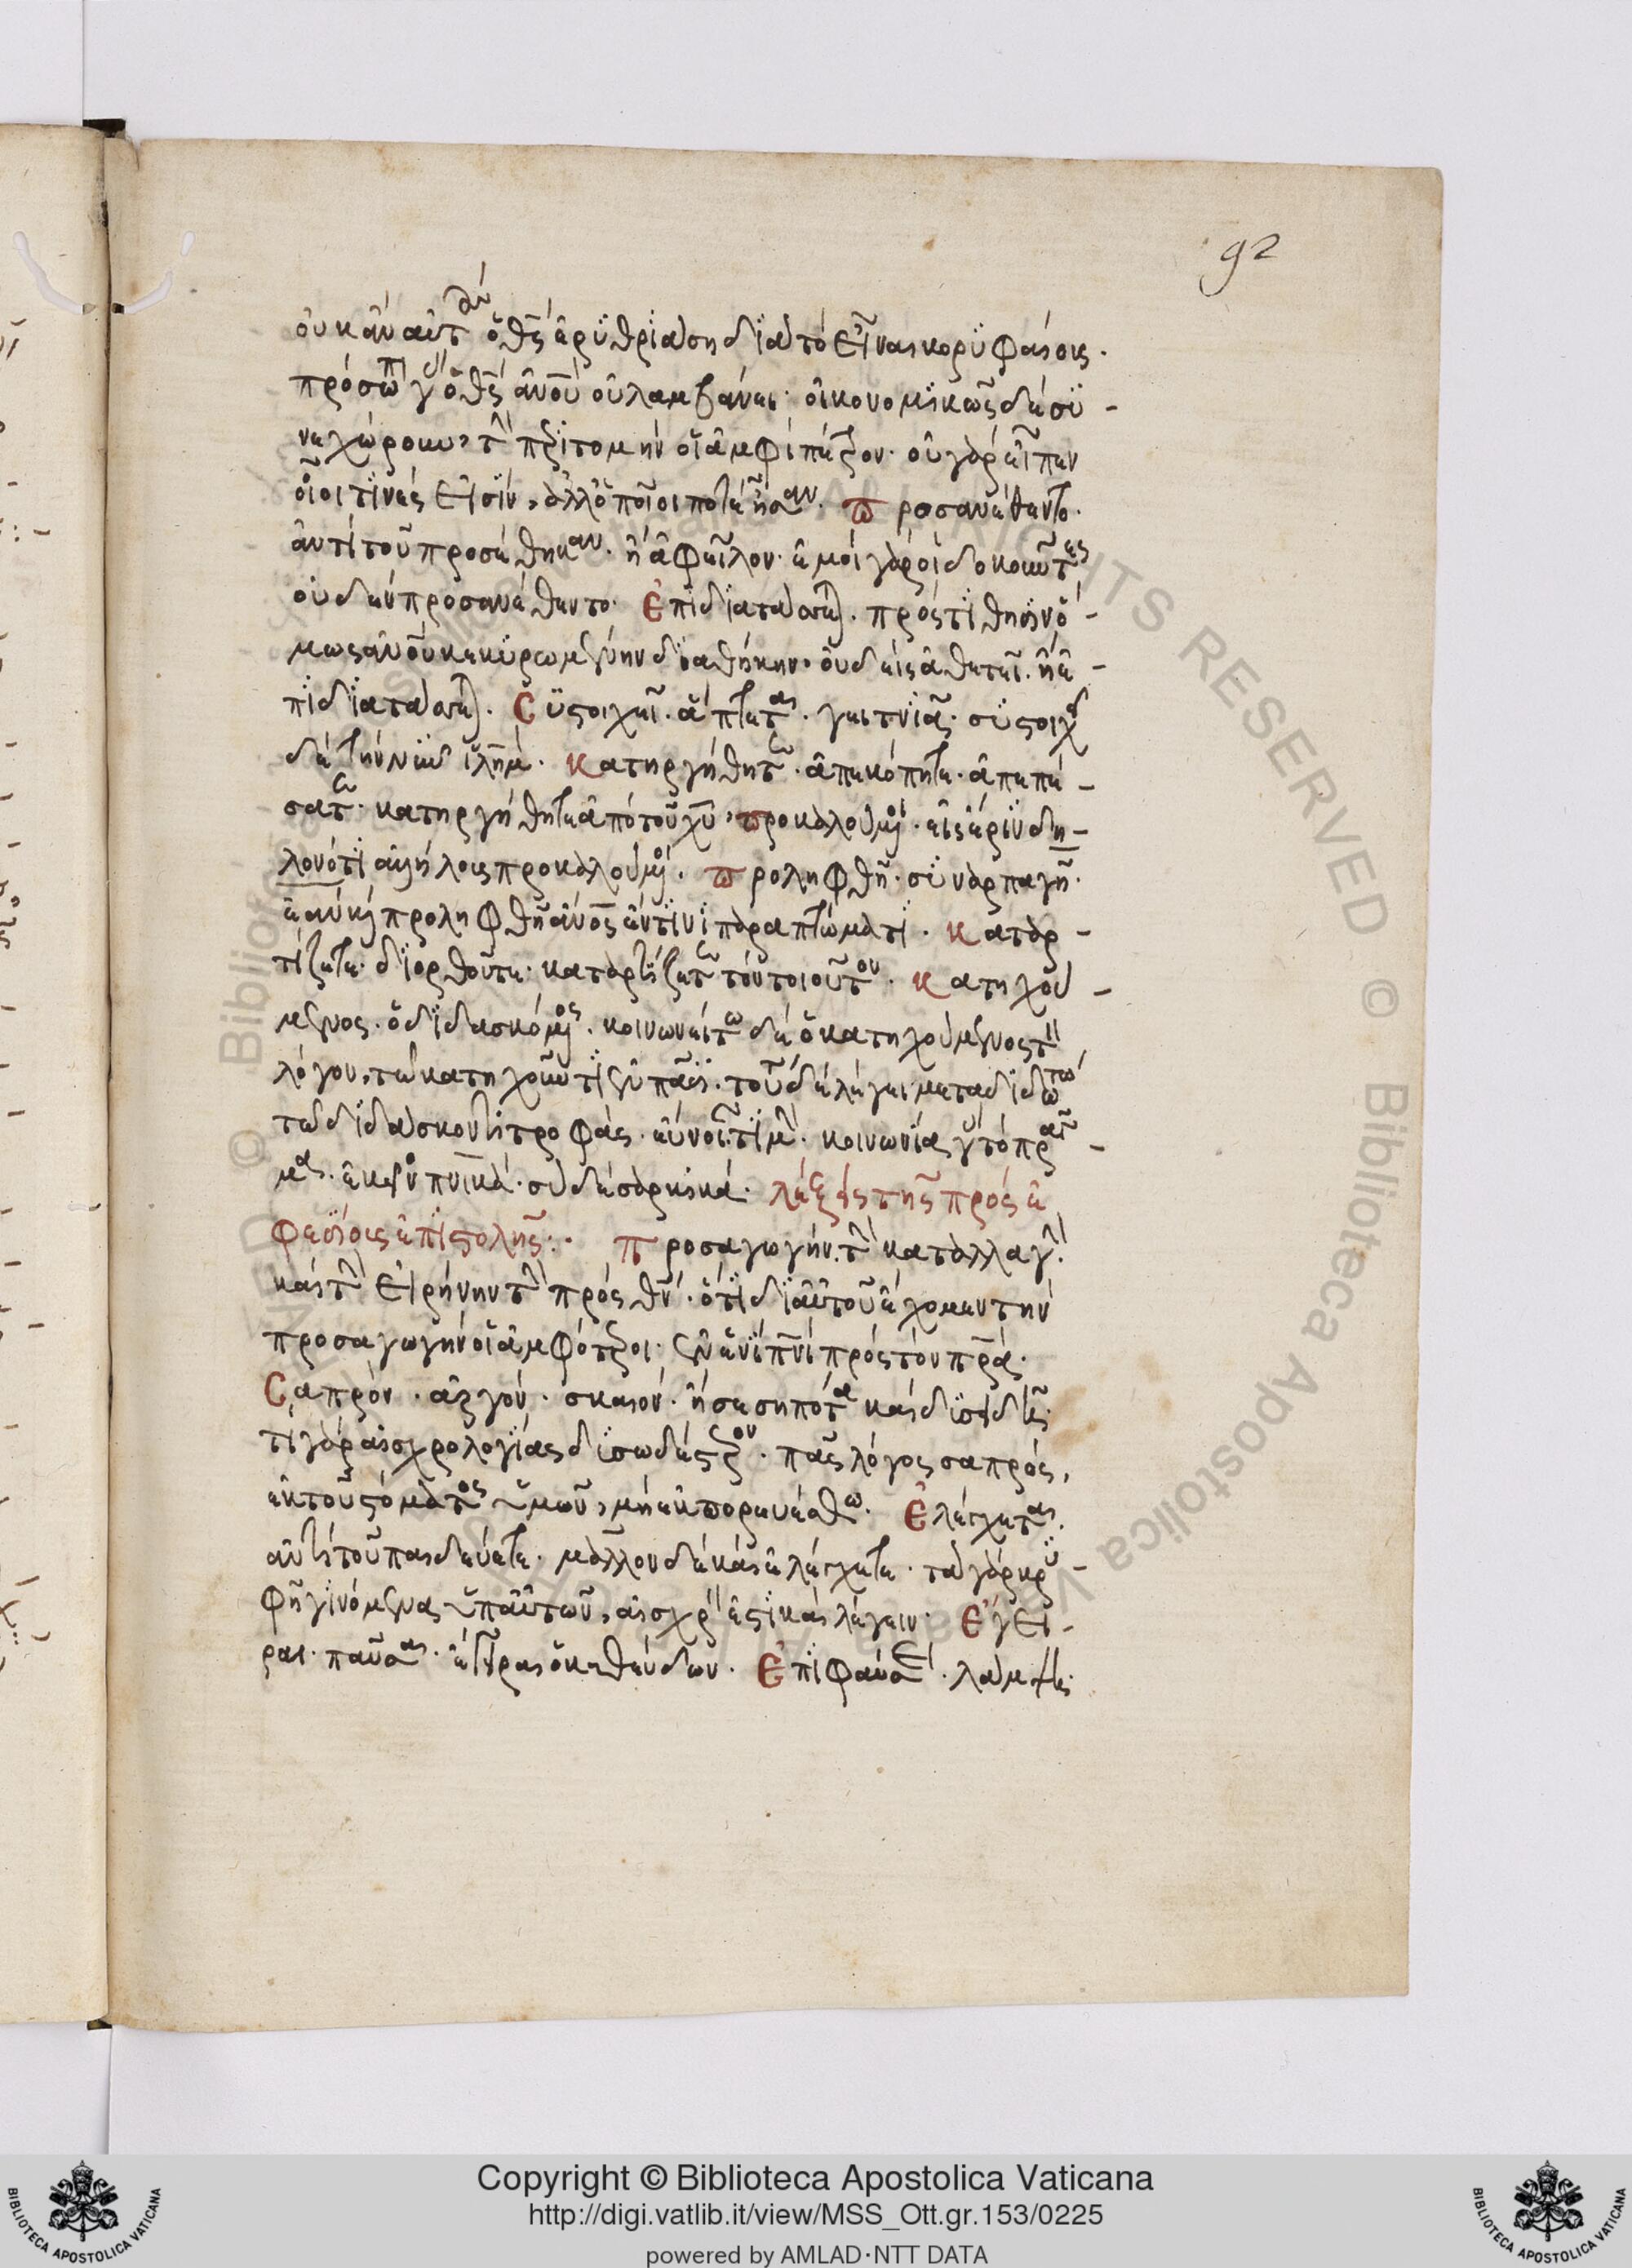 92
οὐκ ἂν αὐτ ὁ θς ἐρυθριάση διὰ τὸ εἶναι κορυφαίοις.
πρόσωπ γ ὁ θς ἀνου οὐ λαμβάνει· οἰκονομικῶς δὲ συ-
νεχώρουν τὴν περιτομὴν οἱ ἀμφὶ πέτρον· οὐ γὰρ εἶπεν
οἷοι τινές εἰσιν, ἀλλ' ὁποῖοι ποτὲ ἦσαν. προσανέθεντο.
ἀντὶ τοῦ προσέθηκαν. ἢ ἀφεῖλον· ἐμοὶ γὰρ οἱ δοκοῦντες
οὐδὲν προσανέθεντο. ἐπιδιατάσσεται. προστίθησιν ὅ-
μως ἀνου κεκυρωμένην διαθήκην οὐδεὶς ἀθετεῖ. ἢ ἐ-
πιδιατάσσεται. Συστοιχεῖ. ἅπτεται. γειτνιᾶ. συστοιχεῖ
δὲ τῆ νῦν ιλημ. κατηργήθητε. ἀπεκόπητε. ἀπεπέ-
σατε. κατηργήθητε ἀπὸ τοῦ χυ, προκαλούμενοι. εἰς ἔριν δη-
λονότι ἀλλήλους προκαλούμενοι. προληφθῆ. συναρπαγῆ.
ἐὰν καὶ προληφθῆ ανος ἔν τινι παραπτώματι. καταρ-
τίζετε. διορθοῦτε. καταρτίζετε τὸν τοιοῦτον. κατηχού-
μενος. ὁ διδασκόμενος. κοινωνείτω δὲ ὁ κατηχούμενος τὸν
λόγον, τῶ κατηχοῦντι ἐν πᾶσι. τοῦτο δὲ λέγει μεταδιδότω
τῶ διδάσκοντι τροφάς. εὔνοιαν τιμήν. κοινωνίας γὰρ τὸ πρᾶγ-
μα. ἐκεῖνος πνικά. σὺ δὲ σαρκικά. λέξεις τῆς πρὸς ἐ
φεσίους ἐπιστολῆς:· Προσαγωγήν. τὴν καταλλαγήν.
καὶ τὴν εἰρήνην τὴν πρὸς θν. ὅτι δι' αὐτοῦ ἔχομεν τὴν
προσαγωγὴν οἱ ἀμφότεροι· ἐν ἑνὶ πνι πρὸς τὸν πρα.
Σαπρόν. ἀργόν. σκαιόν. ἢ σεσηπότα καὶ δυσώδες.
τί γὰρ αἰσχρολογίας δυσωδέστερον. πᾶς λόγος σαπρός,
ἐκ τοῦ στόματος ὑμῶν, μὴ ἐκπορευέσθω. Ἐλέγχεται.
ἀντὶ τοῦ παιδεύετε. μᾶλλον δὲ καὶ ἐλέγχετε. τὰ γὰρ κρυ-
φῆ γινόμενα ὑπ' αὐτῶν, αἰσχρόν ἐστι καὶ λέγειν. Ἔγει-
ραι. παῦσαι. ἔγειραι ὁ καθεύδων. Ἐπιφαύσει. λάμψει.
Copyright © Biblioteca Apostolica Vaticana
http://digi.vatlib.it/view/MSS_Ott.gr.153/0225
powered by AMLAD·NTT DATA